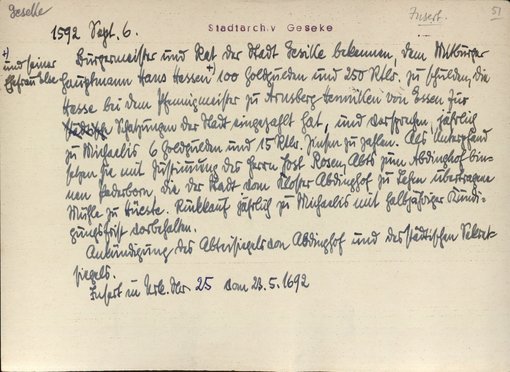 Geseke
Insert.
51
1592 Sept. 6.
Stadtarchiv Geseke
+) und seiner Ehefrau Else
Bürgermeister und Rat der Stadt Geseke bekennen, dem Mitbürger
Hauptmann Hans Hessen +) 100 Goldgulden und 250 Rtlr. zu schulden, die
Hesse bei dem Pfennigmeister zu Arnsberg Henniken von Essen für
Schatzungen der Stadt eingezahlt hat, und versprechen, jährlich
zu Michaelis 6 Goldgulden und 15 Rtlr. Zinsen zu zahlen. Als Unterpfand
setzen sie mit Zustimmung des Herrn Jost Rosen, Abts zum Abdinghof bin-
nen Paderborn die der Stadt vom Kloster Abdinghof zu Lehen übertragene
Mühle zu . Rückkauf jährlich zu Michaelis mit halbjähriger Kündi-
gungsfrist vorbehalten.
Ankündigung des Abteisiegels von Abdinghof und des städtischen Sekret-
siegels.
Insert in Urk. Nr. 25 vom 23.5.1692